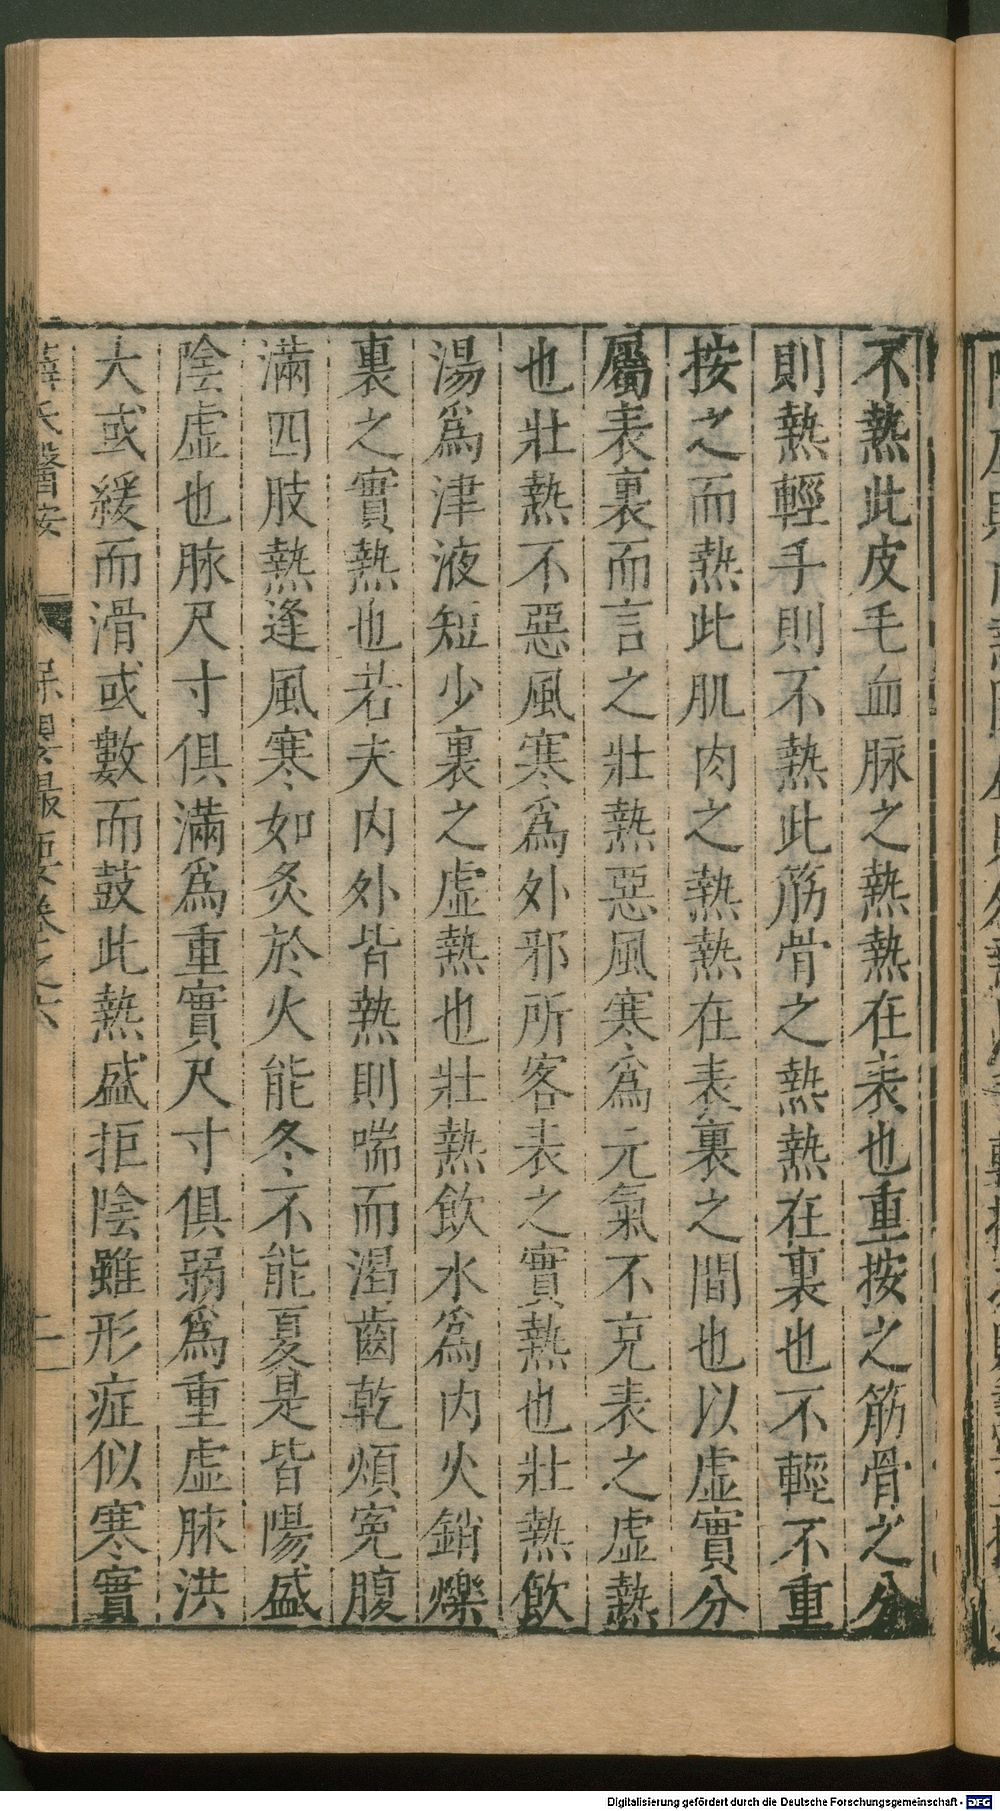 不熱此皮毛血脉之熱熱在表也重按之筋骨之分
則熱輕手則不熱此筋骨之熱熱在裏也不輕不重
按之而熱此肌肉之熱熱在表裏之間也以虛實分
屬表裏而言之壯熱惡風寒爲元氣不充表之虛熱
也壯熱不惡風寒爲外邪所客表之實熱也壯熱飲
湯爲津液短少裏之虛熱也壯熱飲水爲内火銷爍
裏之實熱也若夫内外皆熱則喘而渴齒乾煩寃腹
滿四肢熱逢風寒如灸於火能冬不能夏是皆陽盛
陰虛也脉尺寸俱滿爲重實尺寸俱弱爲重虛脉洪
大或緩而滑或數而鼓此熱盛拒陰雖形症似寒實
薛氏醫按 保嬰撮要卷之六 二
Digitalisierung gefördert durch die Deutsche Forschungsgemeinschaft - DFG